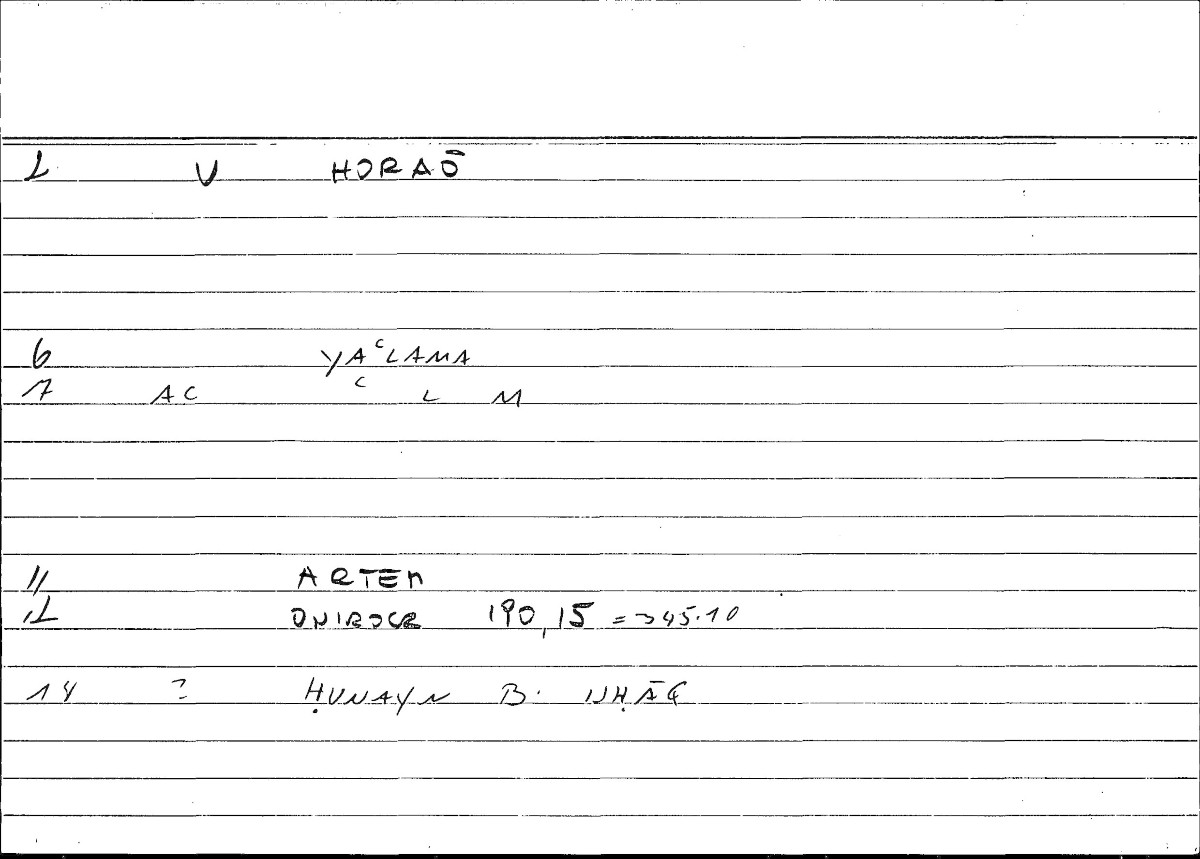 2 V HORAŌ
6 YAʿLAMA
7 AC ʿ L M
11 ARTEM
12 ONIROCR 190,15 = 345.10
14 ? ḤUNAYN B. ISḤĀQ